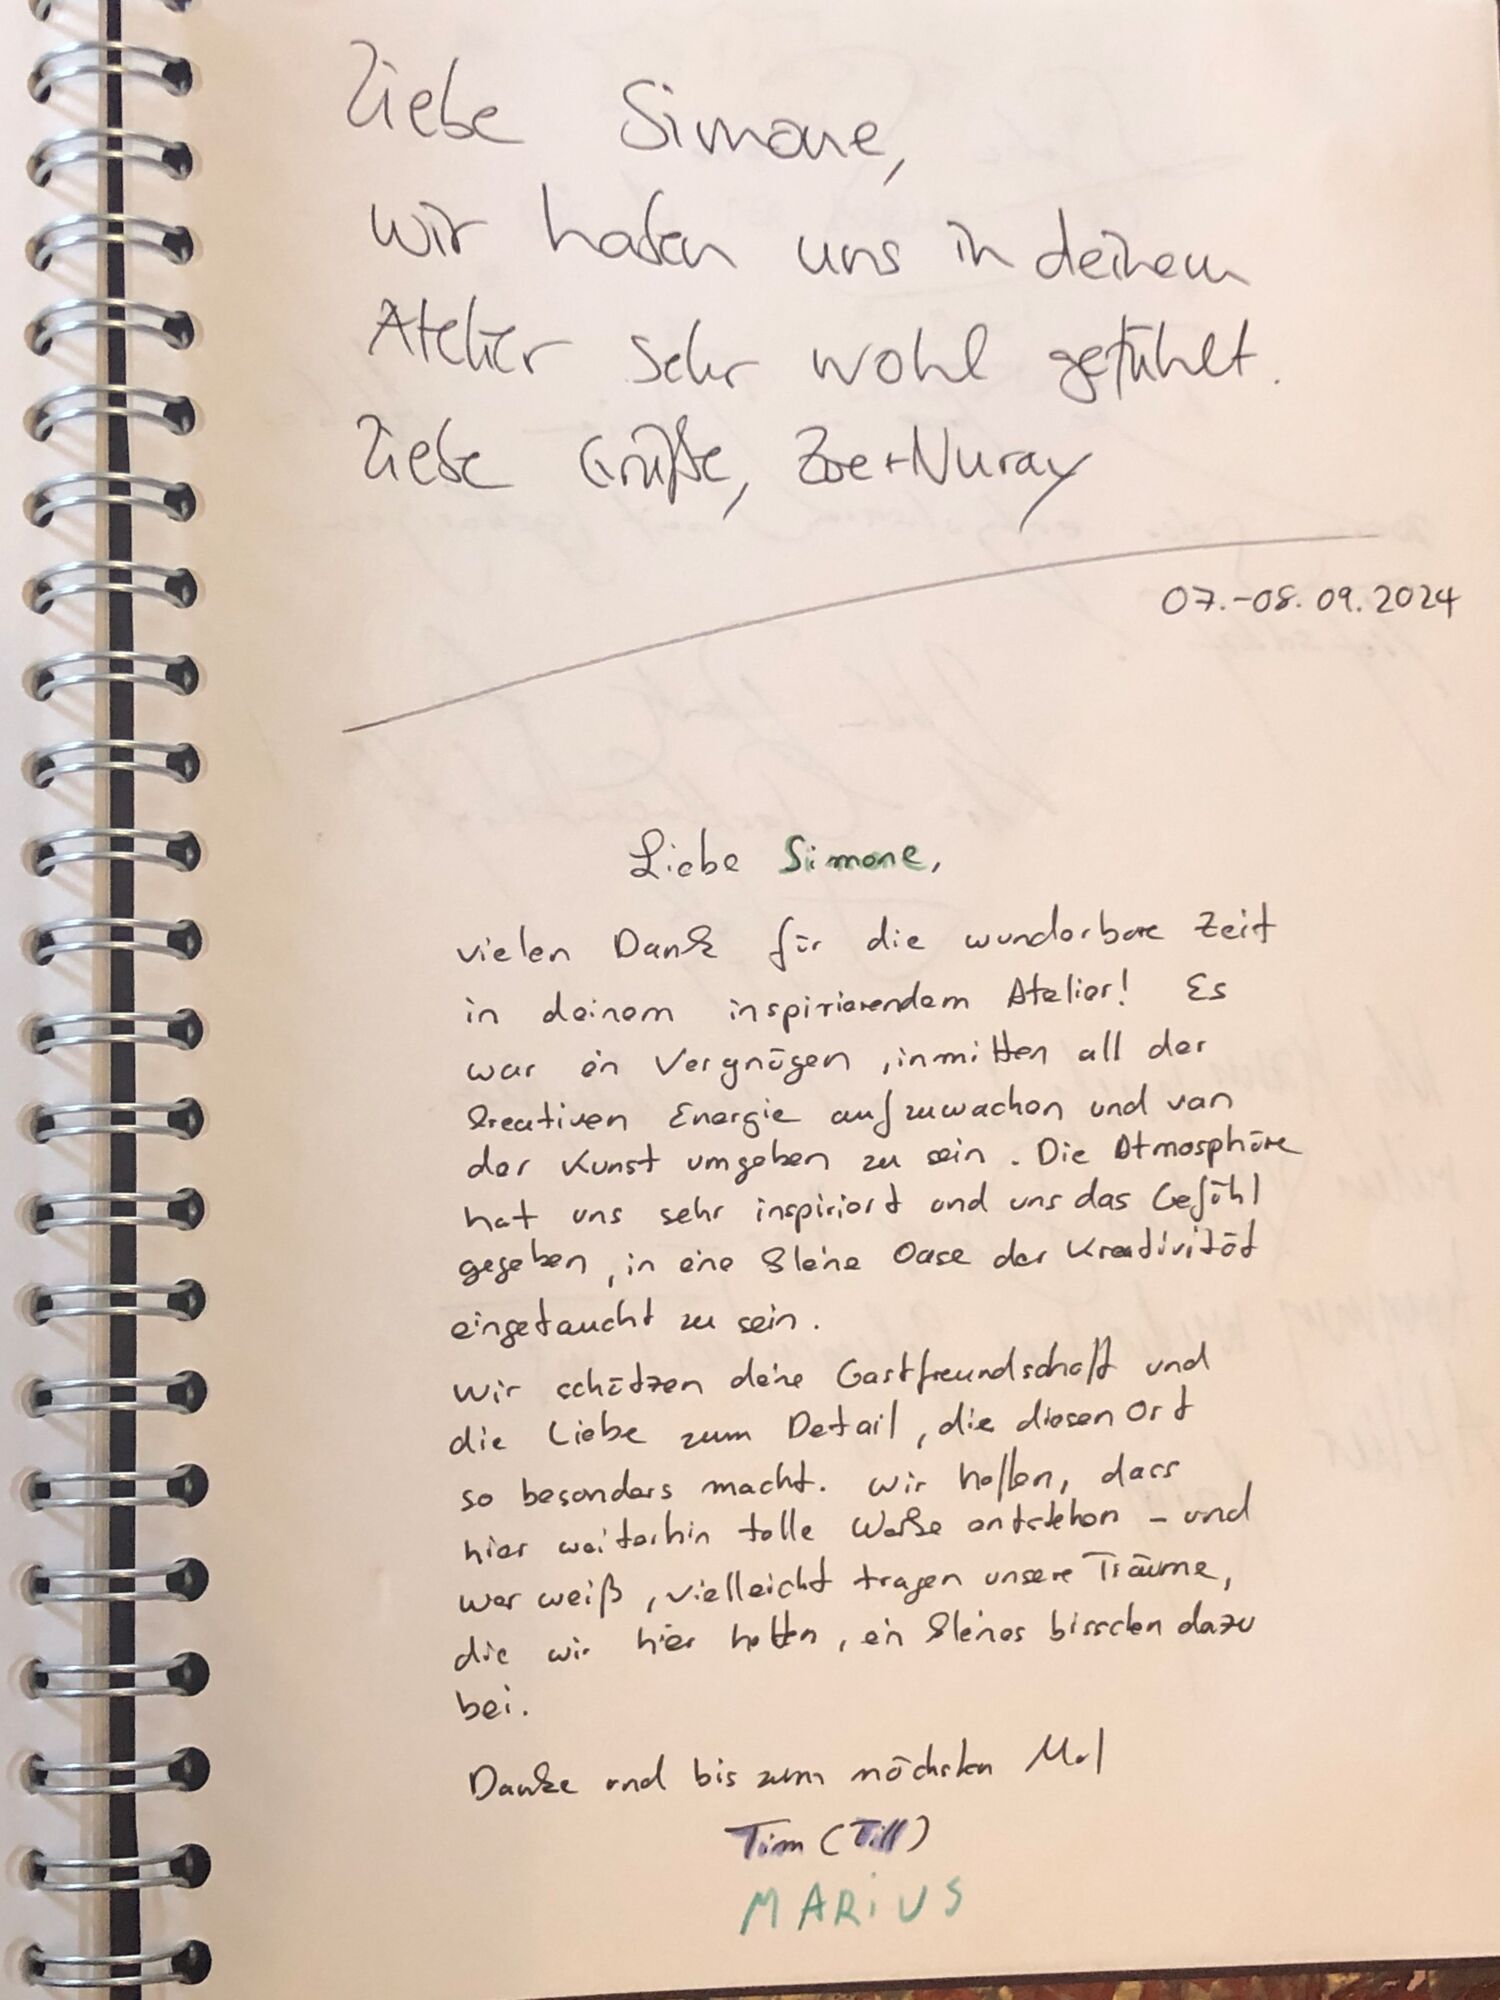 Liebe Simone,
wir haben uns in deinem
Atelier sehr wohl gefühlt.
Liebe Grüße, Zoe + Nuray
07.-08.09.2024
Liebe Simone,
vielen Dank für die wunderbare Zeit
in deinem inspirierendem Atelier! Es
war ein Vergnügen, inmitten all der
kreativen Energie aufzuwachen und von
der Kunst umgeben zu sein. Die Atmosphäre
hat uns sehr inspiriert und uns das Gefühl
gegeben, in eine kleine Oase der Kreativität
eingetaucht zu sein.
Wir schätzen deine Gastfreundschaft und
die Liebe zum Detail, die diesen Ort
so besonders macht. Wir hoffen, dass
hier weiterhin tolle Werke entstehen - und
wer weiß, vielleicht tragen unsere Träume,
die wir hier hatten, ein kleines bisschen dazu
bei.
Danke und bis zum nächsten Mal
Tim (Till)
MARiUS